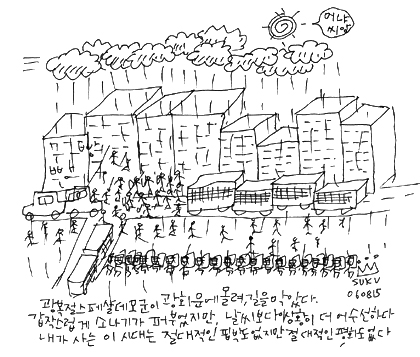 SUKU
060815
광복절스페샬데모꾼이 광화문에몰려길을막았다.
갑작스럽게 소나기가 퍼부었지만, 날씨보다상황이 더 어수선하다
내가 사는 이 시대는 절대적인 핍박도없지만 절대적인 평화도없다